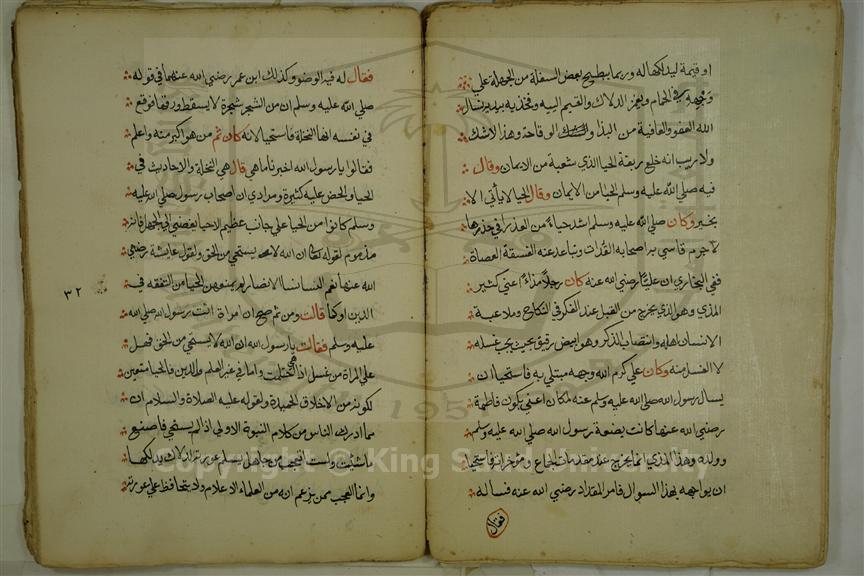 او قيمة ليدلكها له وربما ينطح بعض السفلة من الجهلة علي
وجهه في الحمام ويامر الدلاك والقيم اليه وفخذيه بيده نسال
الله العفو والعافية من البذا او فاحة وهذا لا شك
ولا ريب انه خلع ربقة الحيا الذي شعبة من الايمان وقال
فيه صلي الله عليه وسلم الحيا من الايمان وقال الحيا لا ياتي الا
بخير وكان صلي الله عليه وسلم اشد حياء من العذرا في خدرها
لا جرم قاسي به اصحابه القذات وتباعد عنه الفسقة العصاة
ففي البخاري ان عليا رضي الله عنه كان رجلا مذاء اعني كثير
المذي وهو الذي يخرج من القبل عند الفكر في النكاح وملاعبة
الانسان اهله وانتصاب الذكر وهو ابيض رقيق يجب غسله
لا الغسل منه وكان علي كرم الله وجهه مبتلي به فاستحيا ان
يسال رسول الله صلي الله عليه وسلم عنه لمكان اعني يكون فاطمة
رضي الله عنها كانت بضعة رسول الله صلي الله عليه وسلم
وولده وهذا المذي انما يخرج عند مقدمات الجماع فاستحيا
ان يواجهه بهذا السوال فامر المقداد رضي الله عنه فساله
فقال
فقال له فيه الوضو وكذلك ابن عمر رضي الله عنهما في قوله
صلي الله عليه وسلم ان من الشجر شجرة لا يسقط ورقها فوقع
في نفسه انها النخلة فاستحيا لانه كان ثم من هو اكبر منه واعلم
فقالوا يا رسول الله اخبرنا ما هي قال هي النخلة والاحاديث في
الحيا والحض عليه كثيرة ومرادي ان اصحاب رسول صلي الله عليه
وسلم كانوا من الحيا علي جانب عظيم الا حيا يفضي الي الجهل فانه
مذموم لقوله تعالي ان الله لا يستحي من الحق ولقول عايشة رضي
الله عنها نعم النسا نسا الانصار لم يمنعهن الحيا من التفقه في
الدين او كما قالت ومن ثم صح ان امراة اتت رسول الله صلي الله
عليه وسلم فقالت يا رسول الله ان الله لا يستحي من الحق فهل
علي المراة من غسل اذا هي احتلمت واما في غير العلم والدين فالحيا متعين
لكونه من الاخلاق الحميدة ولقوله عليه الصلاة والسلام ان
مما ادرك الناس من كلام النبوة الاولي اذا لم تستحي فاصنع
ما شيت ولست اتعجب من جاهل يسلم عورته لدلاك يدلكها
وانما العجب ممن يزعم انه من العلماء الاعلام ولا يتحافظ علي عورته
٣٢
1957
Copyright © King Saud University